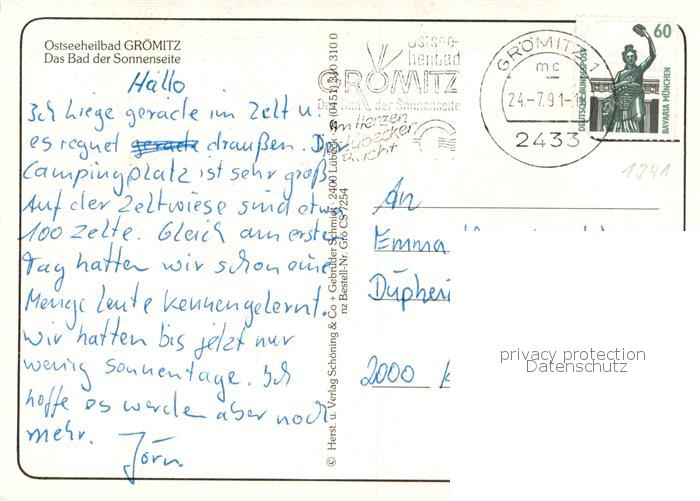 Ostseeheilbad GRÖMITZ
Das Bad der Sonnenseite
Hallo
Ich liege gerade im Zelt u.
es regnet gerade draußen. Der
Campingplatz ist sehr groß.
Auf der Zeltwiese sind etwa
100 Zelte. Gleich am ersten
Tag hatten wir schon eine
Menge Leute kennengelernt.
Wir hatten bis jetzt nur
wenig Sonnentage. Ich
hoffe es werden aber noch
mehr.
Jörn
© Herst. u. Verlag Schöning & Co + Gebrüder Schmidt · 2400 Lübeck · ☎ (0451) 310 310 0
nz Bestell-Nr. Grö CS 7254
Ostsee-
heilbad
GRÖMITZ
Das Bad der Sonnenseite
im Herzen
Lübecker
Bucht
GRÖMITZ 1
mc
24.-7.91-1
2433
60
DEUTSCHE BUNDESPOST
BAVARIA MÜNCHEN
1341
An
Emma
2000
privacy protection
Datenschutz